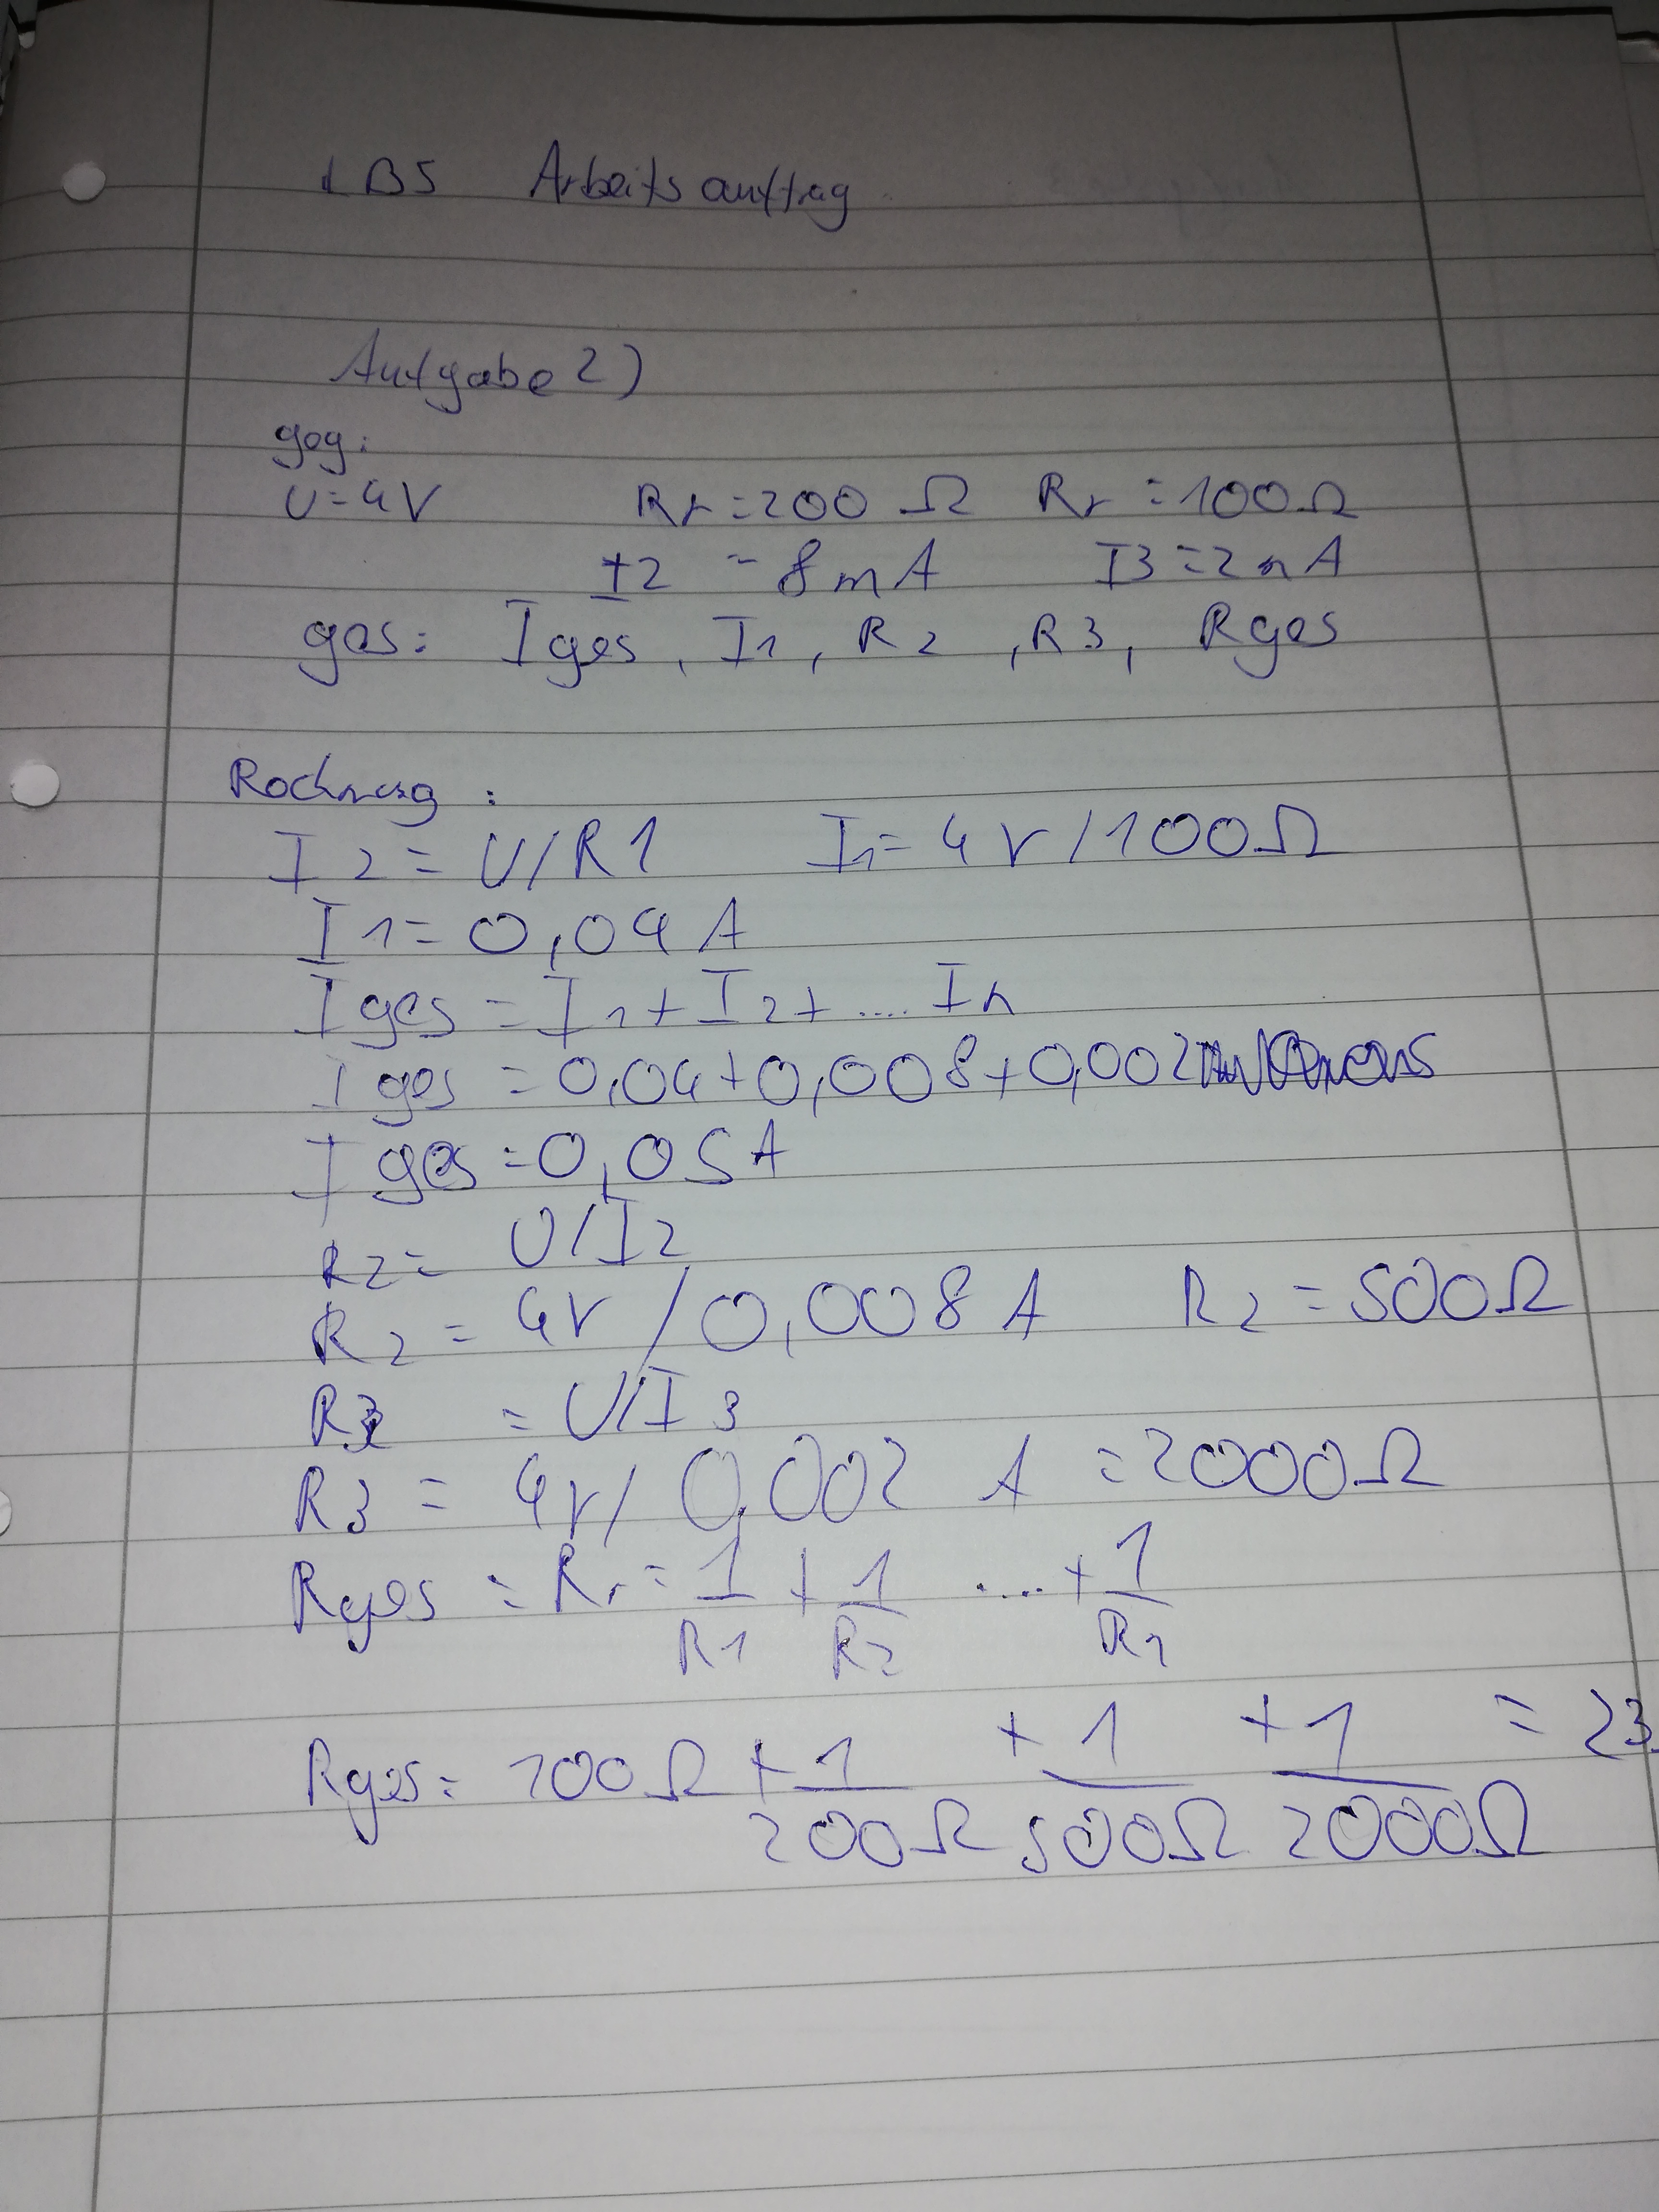 LBS Arbeitsauftrag
Aufgabe 2)
geg:
U=4V Rr=200 Ω Rr=100Ω
I2 = 8mA I3=2mA
ges: Iges, I1, R2, R3, Rges
Rechnung:
I2=U/R1 I1=4V/100Ω
I1=0,04A
Iges=I1+I2+....In
Iges=0,04+0,008+0,002
Iges=0,05A
R2= U/I2
R2= 4V/0,008A R2=500Ω
R3 =U/I3
R3= 4V/0,002 A =2000Ω
Rges = Rr= 1/R1 + 1/R2 ....+ 1/Rn
Rges= 100Ω + 1/200Ω + 1/500Ω + 1/2000Ω = 23